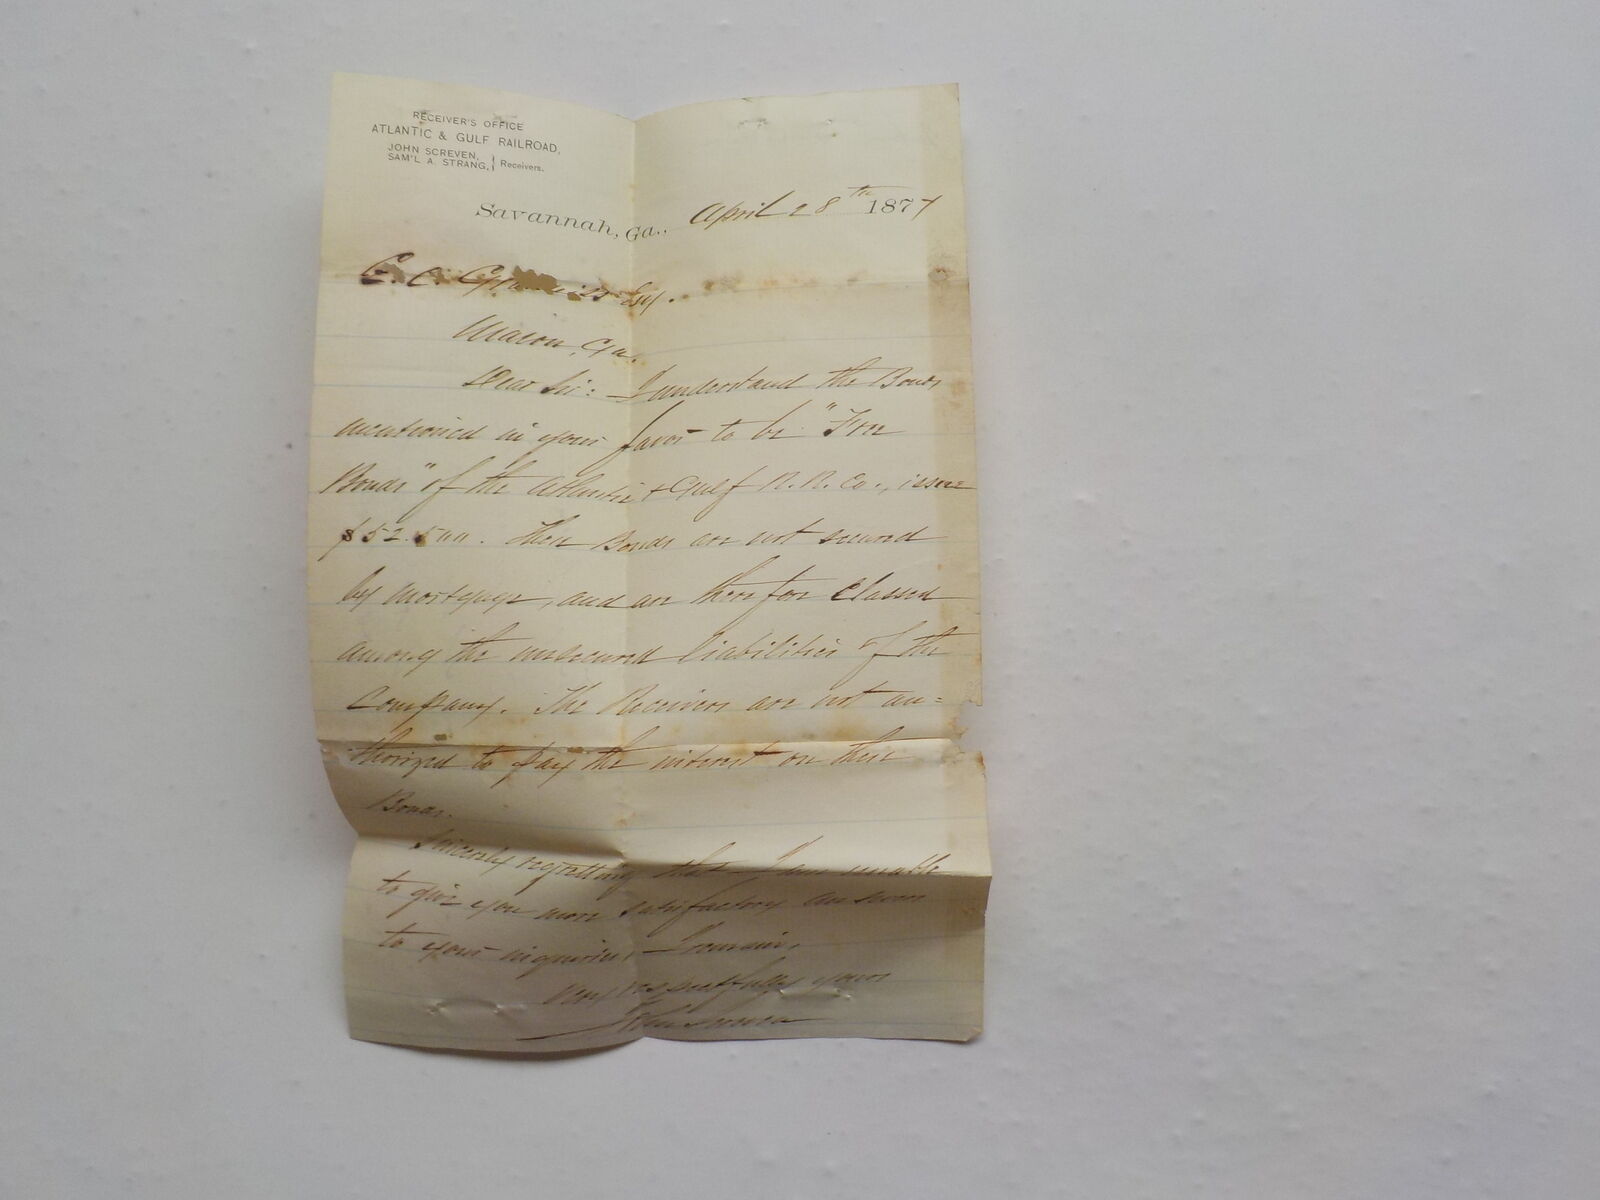 RECEIVER'S OFFICE
ATLANTIC & GULF RAILROAD,
JOHN SCREVEN,
SAM'L A. STRANG, } Receivers.
Savannah, Ga., April 28th 1877
C. C. Esq.
Macon, Ga.
Dear Sir: I understand the Bonds
mentioned in your favor to be "Free
Bonds" of the Atlantic & Gulf R. R. Co., issue
$52.500. These Bonds are not secured
by mortgage, and are therefore classed
among the unsecured liabilities of the
Company. The Receivers are not au=
thorized to pay the interest on these
Bonds.
Sincerely regretting that I am unable
to give you more satisfactory answer
to your inquiries, I remain,
Very respectfully yours
John Screven